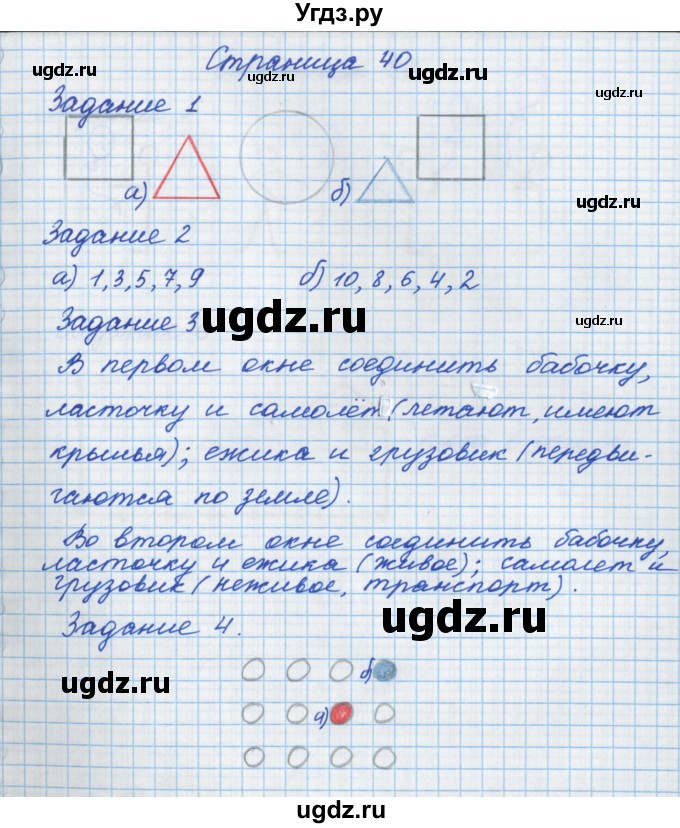 Угдз.ру
Страница 40
ugdz.ru ugdz.ru
Задание 1
ugdz.ru ugdz.ru
а) б)
ugdz.ru ugdz.ru
Задание 2
а) 1, 3, 5, 7, 9 б) 10, 8, 6, 4, 2
Задание 3
ugdz.ru ugdz.ru
В первом окне соединить бабочку,
ласточку и самолёт (летают, имеют
крылья); ежика и грузовик (передви-
гаются по земле).
Во втором окне соединить бабочку,
ласточку и ежика (живое); самолет и
грузовик (неживое, транспорт).
Задание 4.
ugdz.ru
б)
ugdz.ru
а)
ugdz.ru
ugdz.ru